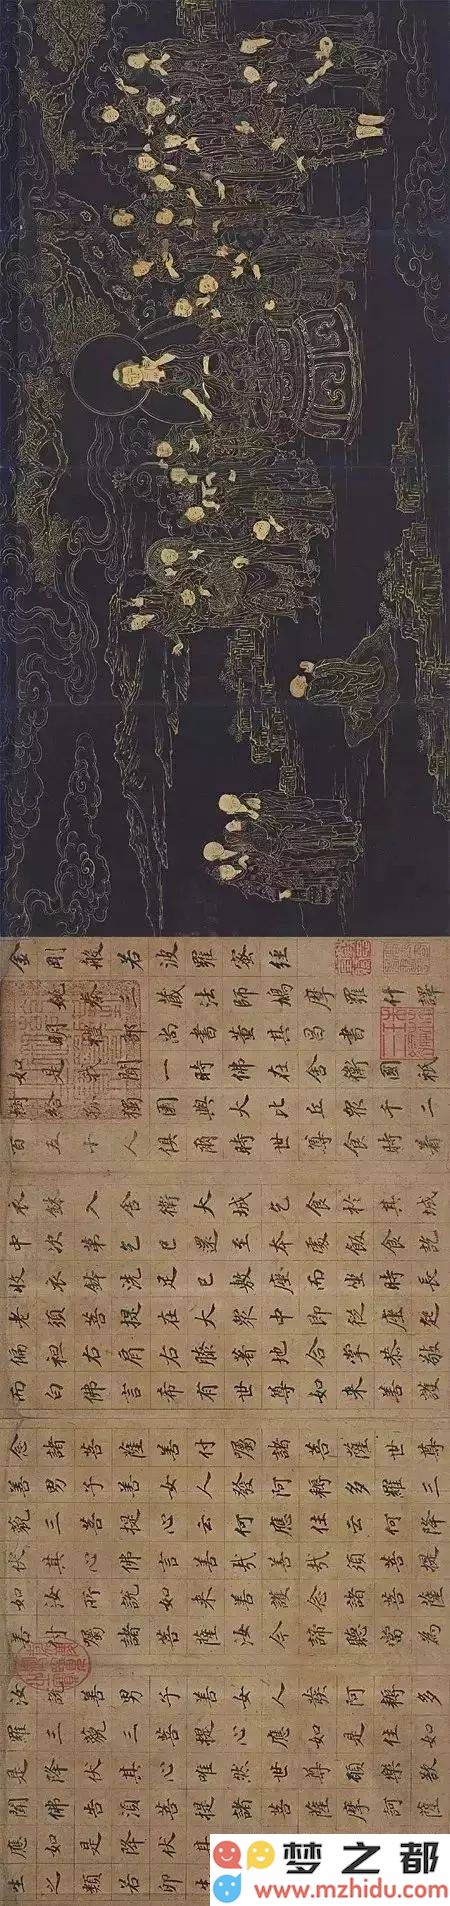 金剛般若波羅蜜經
姚秦三藏法師鳩摩羅什譯
明禮部尚書董其昌書
如是我聞一時佛在舍衛國祇
樹給孤獨園與大比丘眾千二
百五十人俱爾時世尊食時着
衣鉢入舍衛大城乞食於其城
中次第乞已還至本處飯食訖
收衣鉢洗足已敷座而坐時長
老須菩提在大眾中即從座起
偏袒右肩右膝著地合掌恭敬
而白佛言希有世尊如來善護
念諸菩薩善付囑諸菩薩世尊
善男子善女人發阿耨多羅三
藐三菩提心云何應住云何降
伏其心佛言善哉善哉須菩提
如汝所說如來善護念諸菩薩
善付囑諸菩薩汝今諦聽當為
汝說善男子善女人發阿耨多
羅三藐三菩提心應如是住如
是降伏其心唯然世尊願樂欲
聞佛告須菩提諸菩薩摩訶薩
應如是降伏其
生之類若卵生
梦之都
www.mzhidu.com